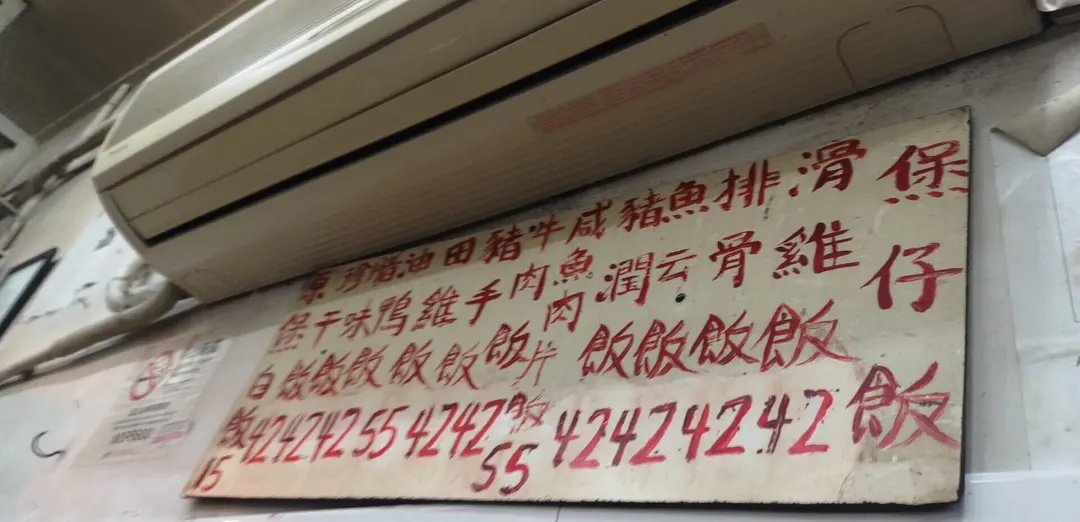 煲仔飯
滑雞飯 42
排骨飯 42
魚云飯 42
豬潤飯 42
咸魚肉片飯 55
牛肉飯 42
豬手飯 42
田雞飯 55
油鴨飯 42
腊味飯 42
珍干飯 42
原煲白飯 15